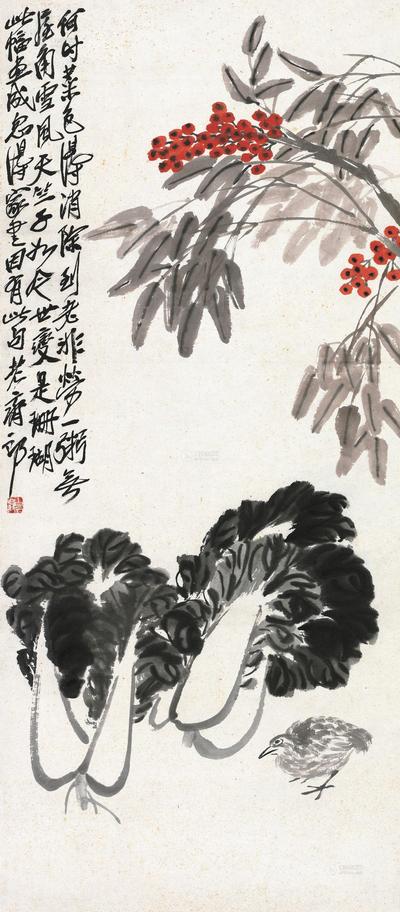 何时菜色得消除到老非劳一粥无
屋角雪风天竺子如人世变是珊瑚
此幅画成忽得家书因有此句老齐